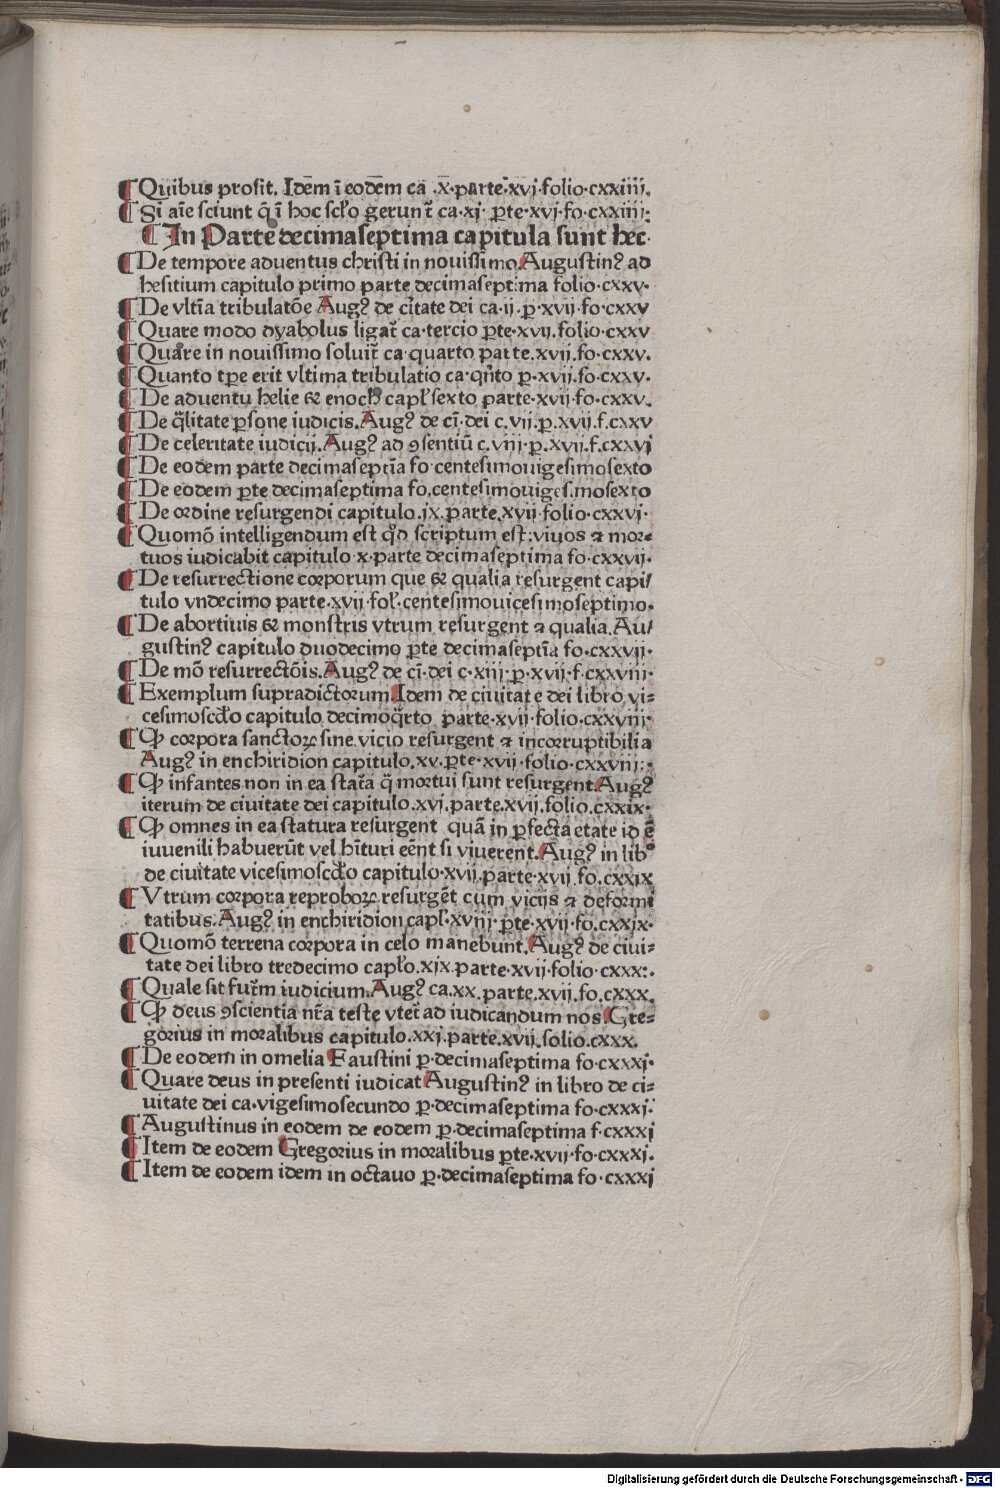 ¶ Quibus prosit. Idēm ī eodēm cā .x̄. parte.xvj.folio.cxxiiij.
¶ Si aīe sciunt q̄ ī hoc scłо gerunt̄ ca.xj. ꝑte.xvj.fo.cxxiiij:
¶ In Parte decimaseptima capitula sunt hec.
¶ De tempore aduentus christi in nouissimo. Augustinꝰ ad
hesitium capitulo primo parte decimaseptima folio.cxxv.
¶ De vltīa tribulatōe Augꝰ de cītate dei ca.ij.p.xvij.fo.cxxv
¶ Quare modo dyabolus ligat̄ ca.tercio ꝑte.xvij.folio.cxxv
¶ Quare in nouissimo soluit̄ ca.quarto parte.xvij.fo.cxxv.
¶ Quanto tꝑe erit vltima tribulatio ca.qn̄to ꝑ.xvij.fo.cxxv.
¶ De aduentu helie & enoch capł sexto parte.xvij.fo.cxxv.
¶ De q̄litate ꝑsone iudicis. Augꝰ de ci.dei c.vij.p.xvij.f.cxxv
¶ De celeritate iudicij. Augꝰ ad ꝯsentiū c.viij.p.xvij.f.cxxvj
¶ De eodem parte decimaseptīa fo.centesimouigesimosexto
¶ De eodem ꝑte decimaseptima fo.centesimouigesimosexto
¶ De ordine resurgendi capitulo.ix.parte.xvij.folio.cxxvj.
¶ Quomō intelligendum est qd̄ scriptum est: viuos ⁊ mor⸗
tuos iudicabit capitulo.x.parte decimaseptima fo.cxxvij.
¶ De resurrectione corporum que & qualia resurgent capi/
tulo vndecimo parte.xvij.fol.centesimouicesimoseptimo.
¶ De abortiuis & monstris vtrum resurgent ⁊ qualia. Au/
gustinꝰ capitulo duodecimo ꝑte decimaseptīa fo.cxxvij.
¶ De mō resurrectōis. Augꝰ de ci.dei c.xiij.p.xvij.f.cxxviij.
¶ Exemplum supradictorum. Idem de ciuitate dei libro vi⸗
cesimoscd̄o capitulo decimoq̄rto parte.xvij.folio.cxxviij.
¶ Ꝙ corpora sanctoꝝ sine vicio resurgent ⁊ incorruptibilia
Augꝰ in enchiridion capitulo.xv.ꝑte.xvij.folio.cxxviij:.
¶ Ꝙ infantes non in ea stat̄a q̄ mortui sunt resurgent. Augꝰ
iterum de ciuitate dei capitulo.xvj.parte.xvij.folio.cxxix.
¶ Ꝙ omnes in ea statura resurgent quā in ꝑfecta etate id ē
iuuenili habuerūt vel hīturi eēnt si viuerent. Augꝰ in libº
de ciuitate vicesimoscd̄o capitulo.xvij.parte.xvij.fo.cxxix
¶ Vtrum corpora reproboꝝ resurgēt cum vicijs ⁊ deformi
tatibus. Augꝰ in enchiridion capł.xviij.ꝑte.xvij.fo.cxxix.
¶ Quomō terrena corpora in celo manebunt. Augꝰ de ciui⸗
tate dei libro tredecimo capło.xix.parte.xvij.folio.cxxx:.
¶ Quale sit fut̄m iudicium. Augꝰ ca.xx.parte.xvij.fo.cxxx.
¶ Ꝙ deus ꝯscientia nr̄a teste vtet̄ ad iudicandum nos. Gre⸗
gorius in moralibus capitulo.xxj.parte.xvij.folio.cxxx.
¶ De eodem in omelia Faustini ꝑ.decimaseptima fo.cxxxj.
¶ Quare deus in presenti iudicat Augustinꝰ in libro de ci⸗
uitate dei ca.vigesimosecundo ꝑ.decimaseptima fo.cxxxj.
¶ Augustinus in eodem de eodem ꝑ.decimaseptima f.cxxxj
¶ Item de eodem Gregorius in moralibus ꝑte.xvij.fo.cxxxj.
¶ Item de eodem idem in octauo ꝑ.decimaseptima fo.cxxxj
Digitalisierung gefördert durch die Deutsche Forschungsgemeinschaft - DFG